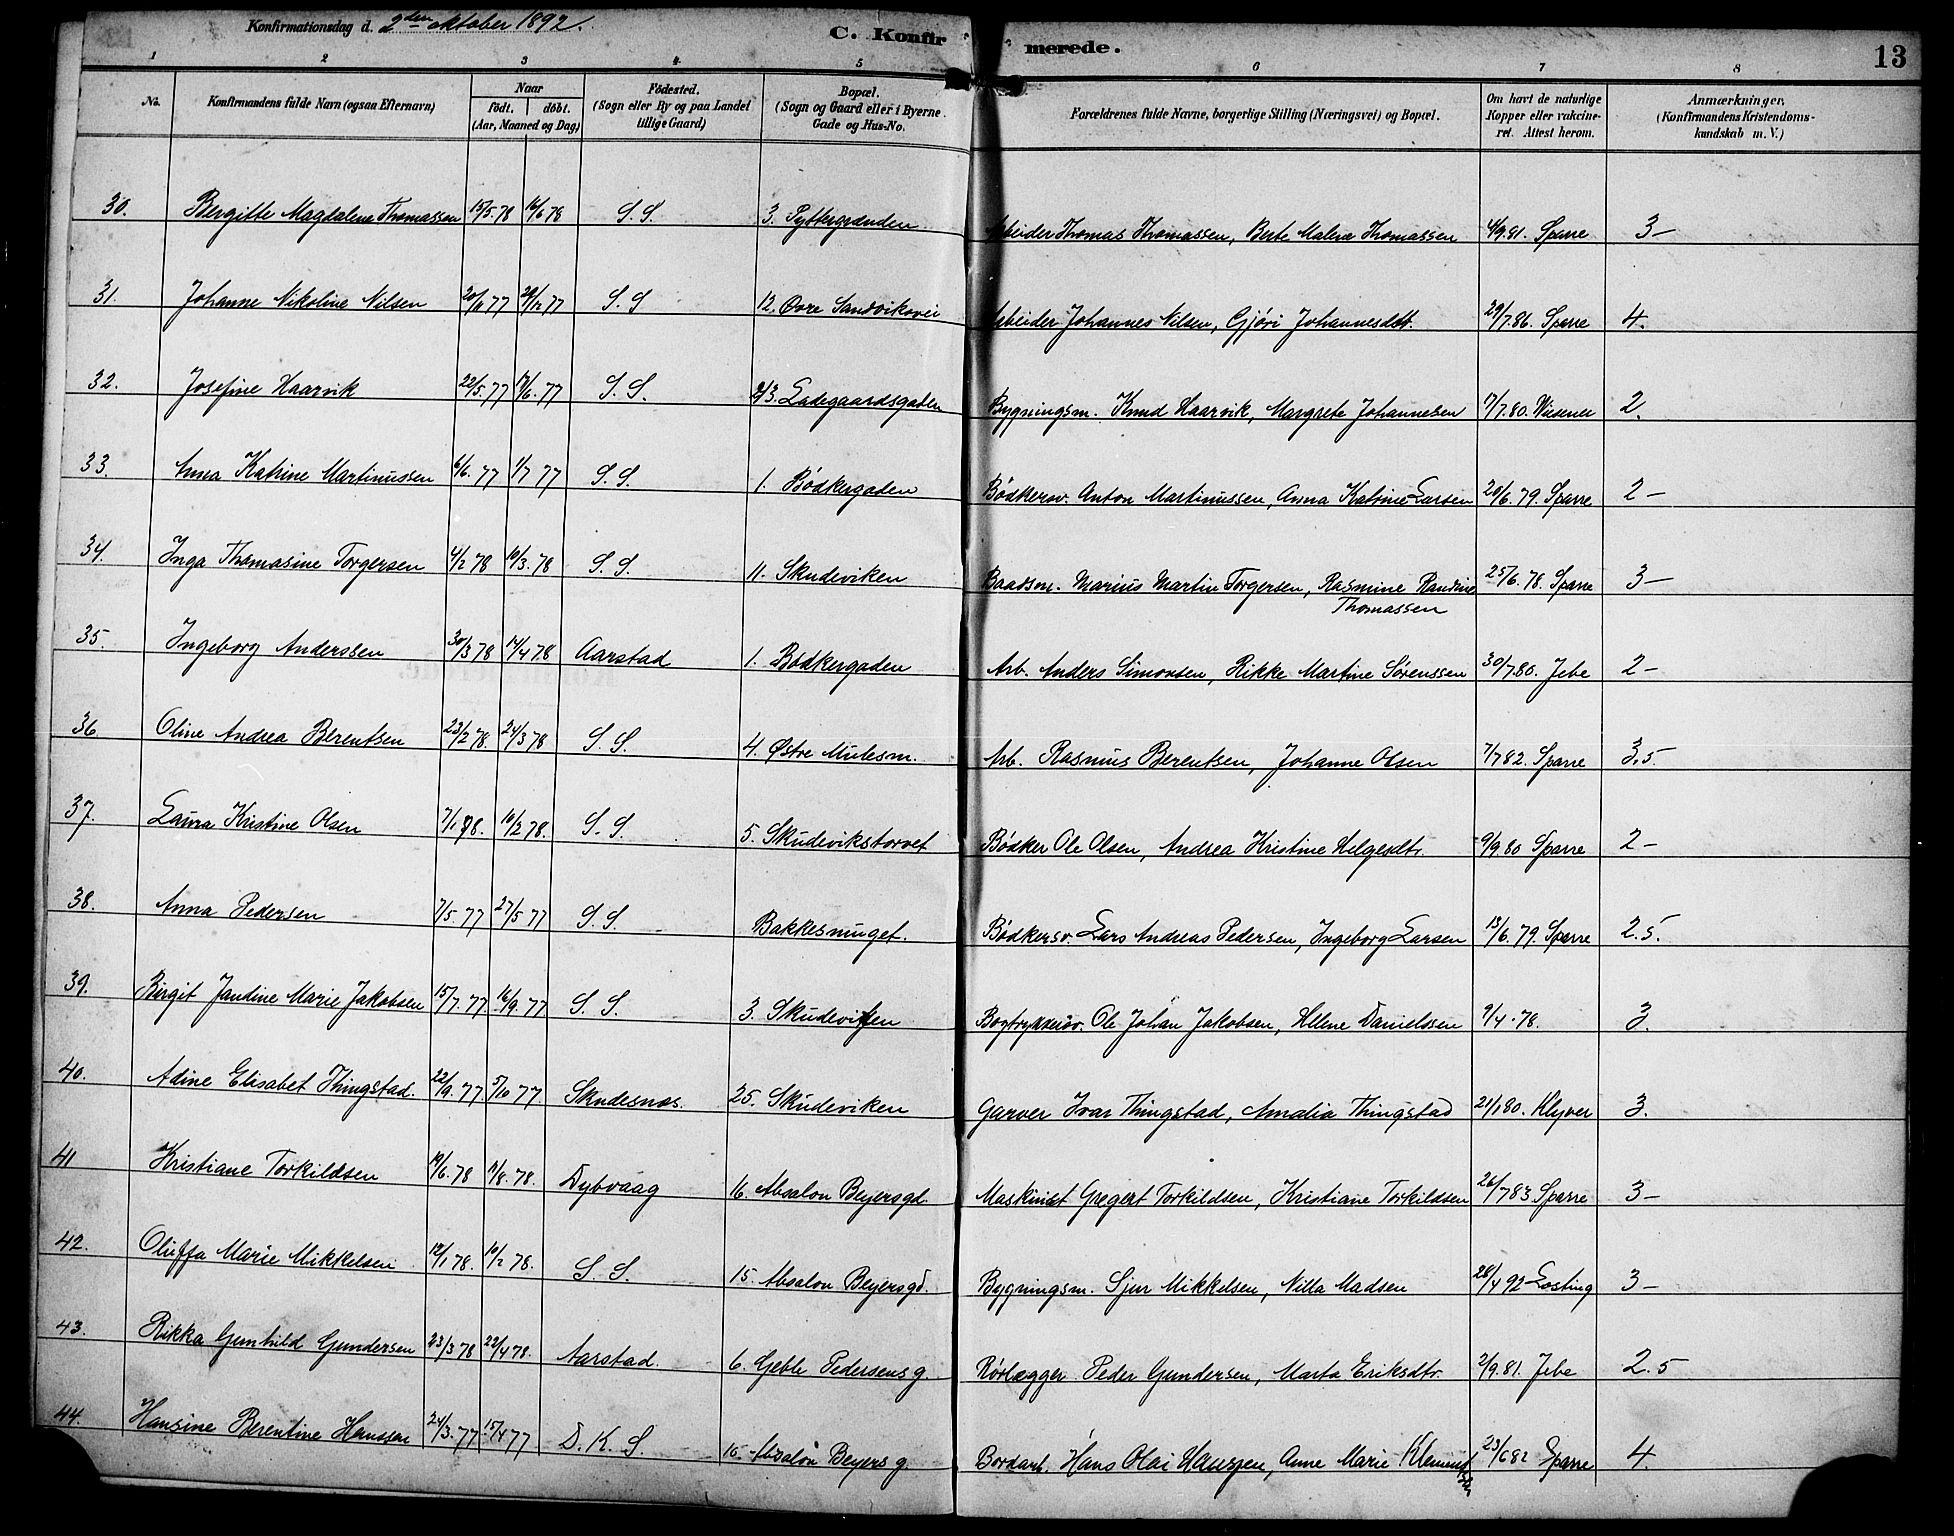 Konfirmationsdag d. 2den oktober 1892. C. Konfirmerede. 13
1 2 3 4 5 6 7 8
No. Konfirmandens fulde Navn (ogsaa Efternavn) Naar født. døbt. (Aar, Maaned og Dag) Fødested. (Sogn eller By og paa Landet tillige Gaard) Bopæl. (Sogn og Gaard eller i Byerne Gade og Hus-No. Forældrenes fulde Navne, borgerlige Stilling (Næringsvei) og Bopæl. Om havt de naturlige Kopper eller vakcineret. Attest herom. Anmærkninger. (Konfirmandens Kristendomskundskab m. V.)
30. Bergitte Magdalene Thomassen 15/5.78 16/6 78 S. S. 3. Pyttergrænden Arbeider Thomas Thomassen, Berte Malene Thomassen 4/9.81. Sparre 3-
31. Johanne Nikoline Nilsen 77 77 S. S 12. Øvre Sandviksvei Arbeider Johannes Nilsen, Gjøri Johannesdtt. 29/7.86. Sparre 4.
32. Josefine Haarvik 22/5.77 77 S. S. Ladegaardsgaden Bygningsm. Knud Haarvik, Margrete Johannesen 7.80. Wiesener 2.
33. Anna Katrine Martinussen 6/6. 77 1/7 77 S. S. 1. Bødkergaden Bødkersv. Anton Martinussen, Anna Katrine Larsen 20/6. 79. Sparre 2-
34. Inga Thomasine Torgersen 4/2 78 10/3. 78 S. S. 11. Skudeviken Baadsm. Marius Martin Torgersen, Rasmine Randine 25/6. 78. Sparre 3-
Thomassen
35. Ingeborg Anderssen 30/3 78 14/4 78 Aarstad 1. Bødkergaden Arb. Anders Simonsen, Rikke Martine Sørenssen 30/7.80. Jebe 2-
36. Oline Andrea Berentsen 23/2 78. 24/3 78 S. S. 4. Østre Mulesm. Arb. Rasmus Berentsen, Johanne Olsen 7/7 82. Sparre 3.5.
37. Laura Kristine Olsen 7/1 78. 10/2 78. S. S. 5. Skudevikstorvet Bødker Ole Olsen, Andrea Kristine Helgesdtr. 9/9.80 Sparre 2-
38. Anna Pedersen 7/5. 77 27/5 77 S. S. Bakkesmuget. Bødkersv. Lars Andreas Pedersen, Ingeborg Larsen 13/6. 79. Sparre 2.5.
39. Birgit Jandine Marie Jakobsen 15/7. 77. 16/9. 77 S. S. 3. Skudeviken Bogtrykkersv. Ole Johan Jakobsen, Helene Danielssen 9/4. 78. 3.
40. Adine Elisabet Thingstad. 22/9. 77 5/10 77. Skudesnæs. 25. Skudeviken Garver Ivar Thingstad, Amalia Thingstad 21/1 80. Klyver 3.
41 Kristiane Torkildsen 19/6. 78 11/8. 78. Dybvaag 16. Absalon Beyersgd. Maskinist Gregert Torkildsen, Kristiane Torkildsen 26/7 83. Sparre 3-
42. Oluffa Marie Mikkelsen 12/1 78. 10/2 78. S. S. 15. Absalon Beyersgd. Bygningsm. Sjur Mikkelsen, Nilla Madsen 28/4 92 Losting 3-
43. Rikka Gunhild Gundersen 23/3 78 22/4 78. Aarstad. 6. Geble Pedersens g. Rørlægger Peder Gundersen, Marta Eriksdtr. 2/9. 81. Jebe 2.5
44. Hansine Berentine Hanssen 24/3. 77. 15/4 77 D. K. S. Absalon Beyers g. Bordarb. Hans Olai Hansen, Anne Marie 23/6 82 Sparre 4.